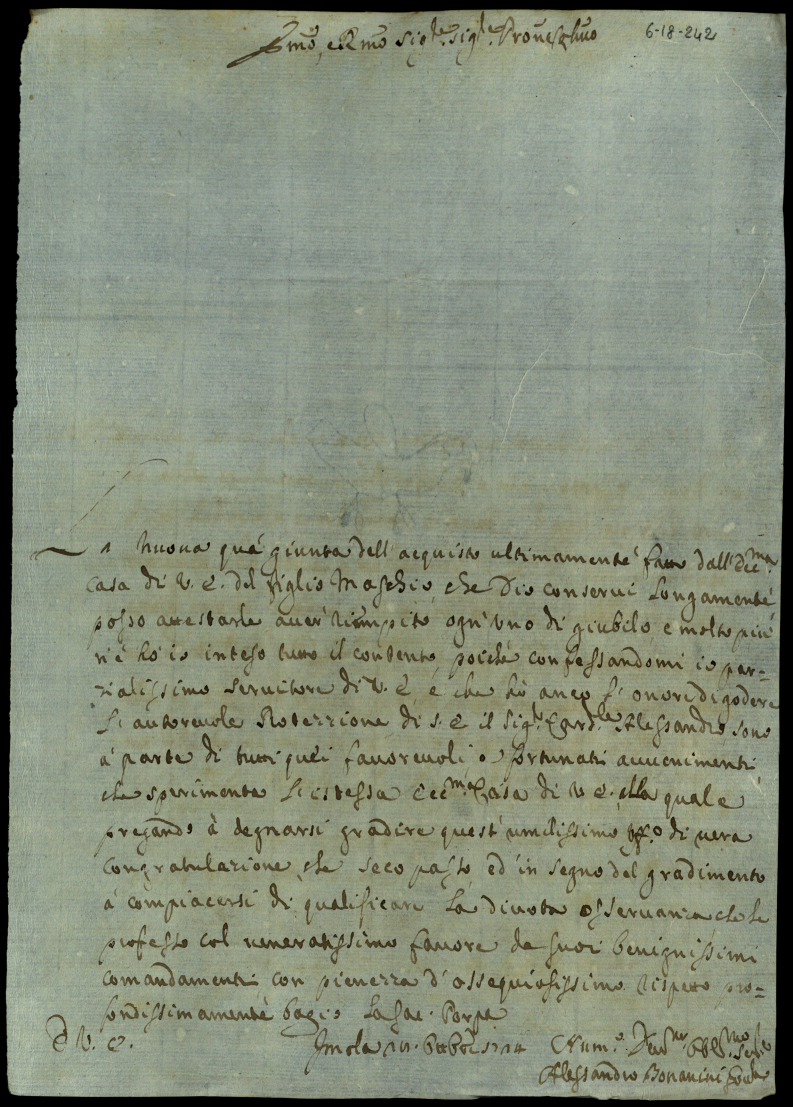 Em̃o, e Rmo Sig.re Sig.re Prone Col.mo
6-18-242
La nuova quà giunta dell'acquisto ultimamente fatto dall'Ecc.ma
Casa di V. E. del figlio Maschio, che Dio conservi Longamente
posso attestarle aver riempito ogn'uno di giubilo, e molto più
n'è hò io inteso tutto il contento, poiché confessandomi io par=
zialissimo Servitore di V. E. e che hò anco l'onore di godere
l'autorevole Protezzione di S. E. il Sig.r Card.le Alessandro sono
à parte di tutti quei favorevoli e fortunati avvenimenti
che sperimenta l'istessa Ecc.ma Casa di V. E. alla quale
pregando à degnarsi gradire quest'umilissimo di vera
congratulazione, che seco passo ed in segno del gradimento
à compiacersi di qualificare la divota osservanza che le
professo col veneratissimo favore de suoi benignissimi
comandamenti con pienezza d'ossequiosissimo rispetto pro=
fondissimamente bacio La Sac. Porpa
D V. E.
Imola
Alessandro Bonanini